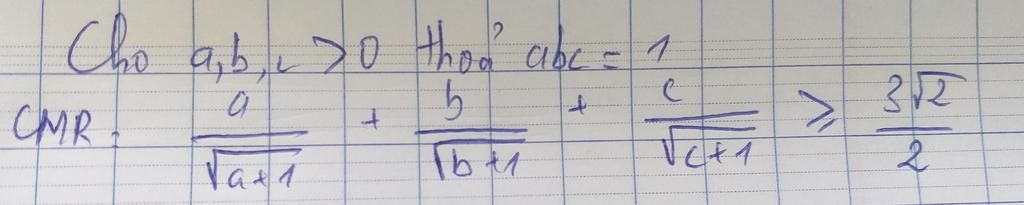 Cho a, b, c > 0 thoả abc = 1
CMR: a/√(a+1) + b/√(b+1) + c/√(c+1) ≥ 3√2/2